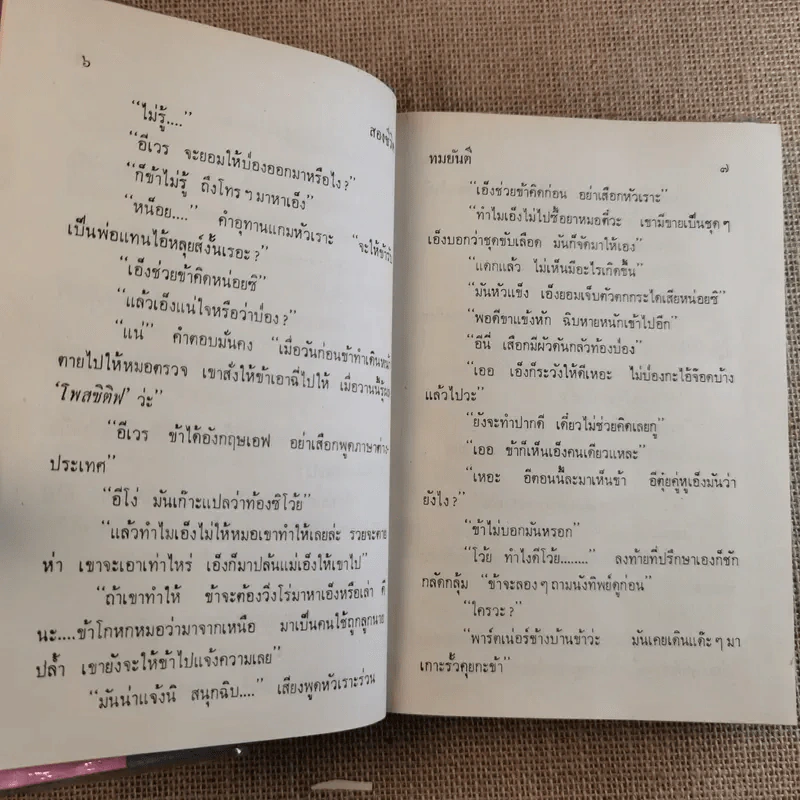 ๖
สองชีวิต
“ไม่รู้....”
“อีเวร จะยอมให้ป่องออกมาหรือไง?”
“ก็ข้าไม่รู้ ถึงโทรฯมาหาเอ็ง”
“หน็อย....” คำอุทานแกมหัวเราะ “จะให้ข้ารับ
เป็นพ่อแทนไอ้หลุยส์งั้นเรอะ?”
“เอ็งช่วยข้าคิดหน่อยซิ”
“แล้วเอ็งแน่ใจหรือว่าป่อง?”
“แน่” คำตอบมั่นคง “เมื่อวันก่อนข้าทำเดินหน้า
ตายไปให้หมอตรวจ เขาสั่งให้ข้าเอาฉี่ไปให้ เมื่อวานนี้รู้ผล
‘โพสซิติฟ’ ว่ะ”
“อีเวร ข้าได้อังกฤษเอฟ อย่าเสือกพูดภาษาต่าง-
ประเทศ”
“อีโง่ มันเก๊าะแปลว่าท้องซิโว้ย”
“แล้วทำไมเอ็งไม่ให้หมอเขาทำให้เลยล่ะ รวยจะตาย
ห่า เขาจะเอาเท่าไหร่ เอ็งก็มาปล้นแม่เอ็งให้เขาไป”
“ถ้าเขาทำให้ ข้าจะต้องวิ่งโร่มาหาเอ็งหรือเล่า ดี
นะ....ข้าโกหกหมอว่ามาจากเหนือ มาเป็นคนใช้ถูกลูกนาย
ปล้ำ เขายังจะให้ข้าไปแจ้งความเลย”
“มันน่าแจ้งนิ สนุกฉิบ....” เสียงพูดหัวเราะร่วน
ทมยันตี
๗
“เอ็งช่วยข้าคิดก่อน อย่าเสือกหัวเราะ”
“ทำไมเอ็งไม่ไปซื้อยาหมอตี๋วะ เขามีขายเป็นชุดๆ
เอ็งบอกว่าชุดขับเลือด มันก็จัดมาให้เอง”
“แดกแล้ว ไม่เห็นมีอะไรเกิดขึ้น”
“มันหัวแข็ง เอ็งยอมเจ็บตัวตกกระไดเสียหน่อยซิ”
“พอดีขาแข้งหัก ฉิบหายหนักเข้าไปอีก”
“อีนี่ เสือกมีผัวดันกลัวท้องป่อง”
“เออ เอ็งก็ระวังให้ดีเหอะ ไม่ป่องกะไอ้จ๊อดบ้าง
แล้วไปวะ”
“ยังจะทำปากดี เดี๋ยวไม่ช่วยคิดเลยกู”
“เออ ข้าก็เห็นเอ็งคนเดียวแหละ”
“เหอะ อีตอนนี้ละมาเห็นข้า อีตุ้ยคู่หูเอ็งมันว่า
ยังไง?”
“ข้าไม่บอกมันหรอก”
“โว้ย ทำไงดีโว้ย........” ลงท้ายที่ปรึกษาเองก็ชัก
กลัดกลุ้ม “ข้าจะลองๆถามนังทิพย์ดูก่อน”
“ใครวะ?”
“พาร์ตเน่อร์ข้างบ้านข้าว่ะ มันเคยเดินแด๊ะๆมา
เกาะรั้วคุยกะข้า”